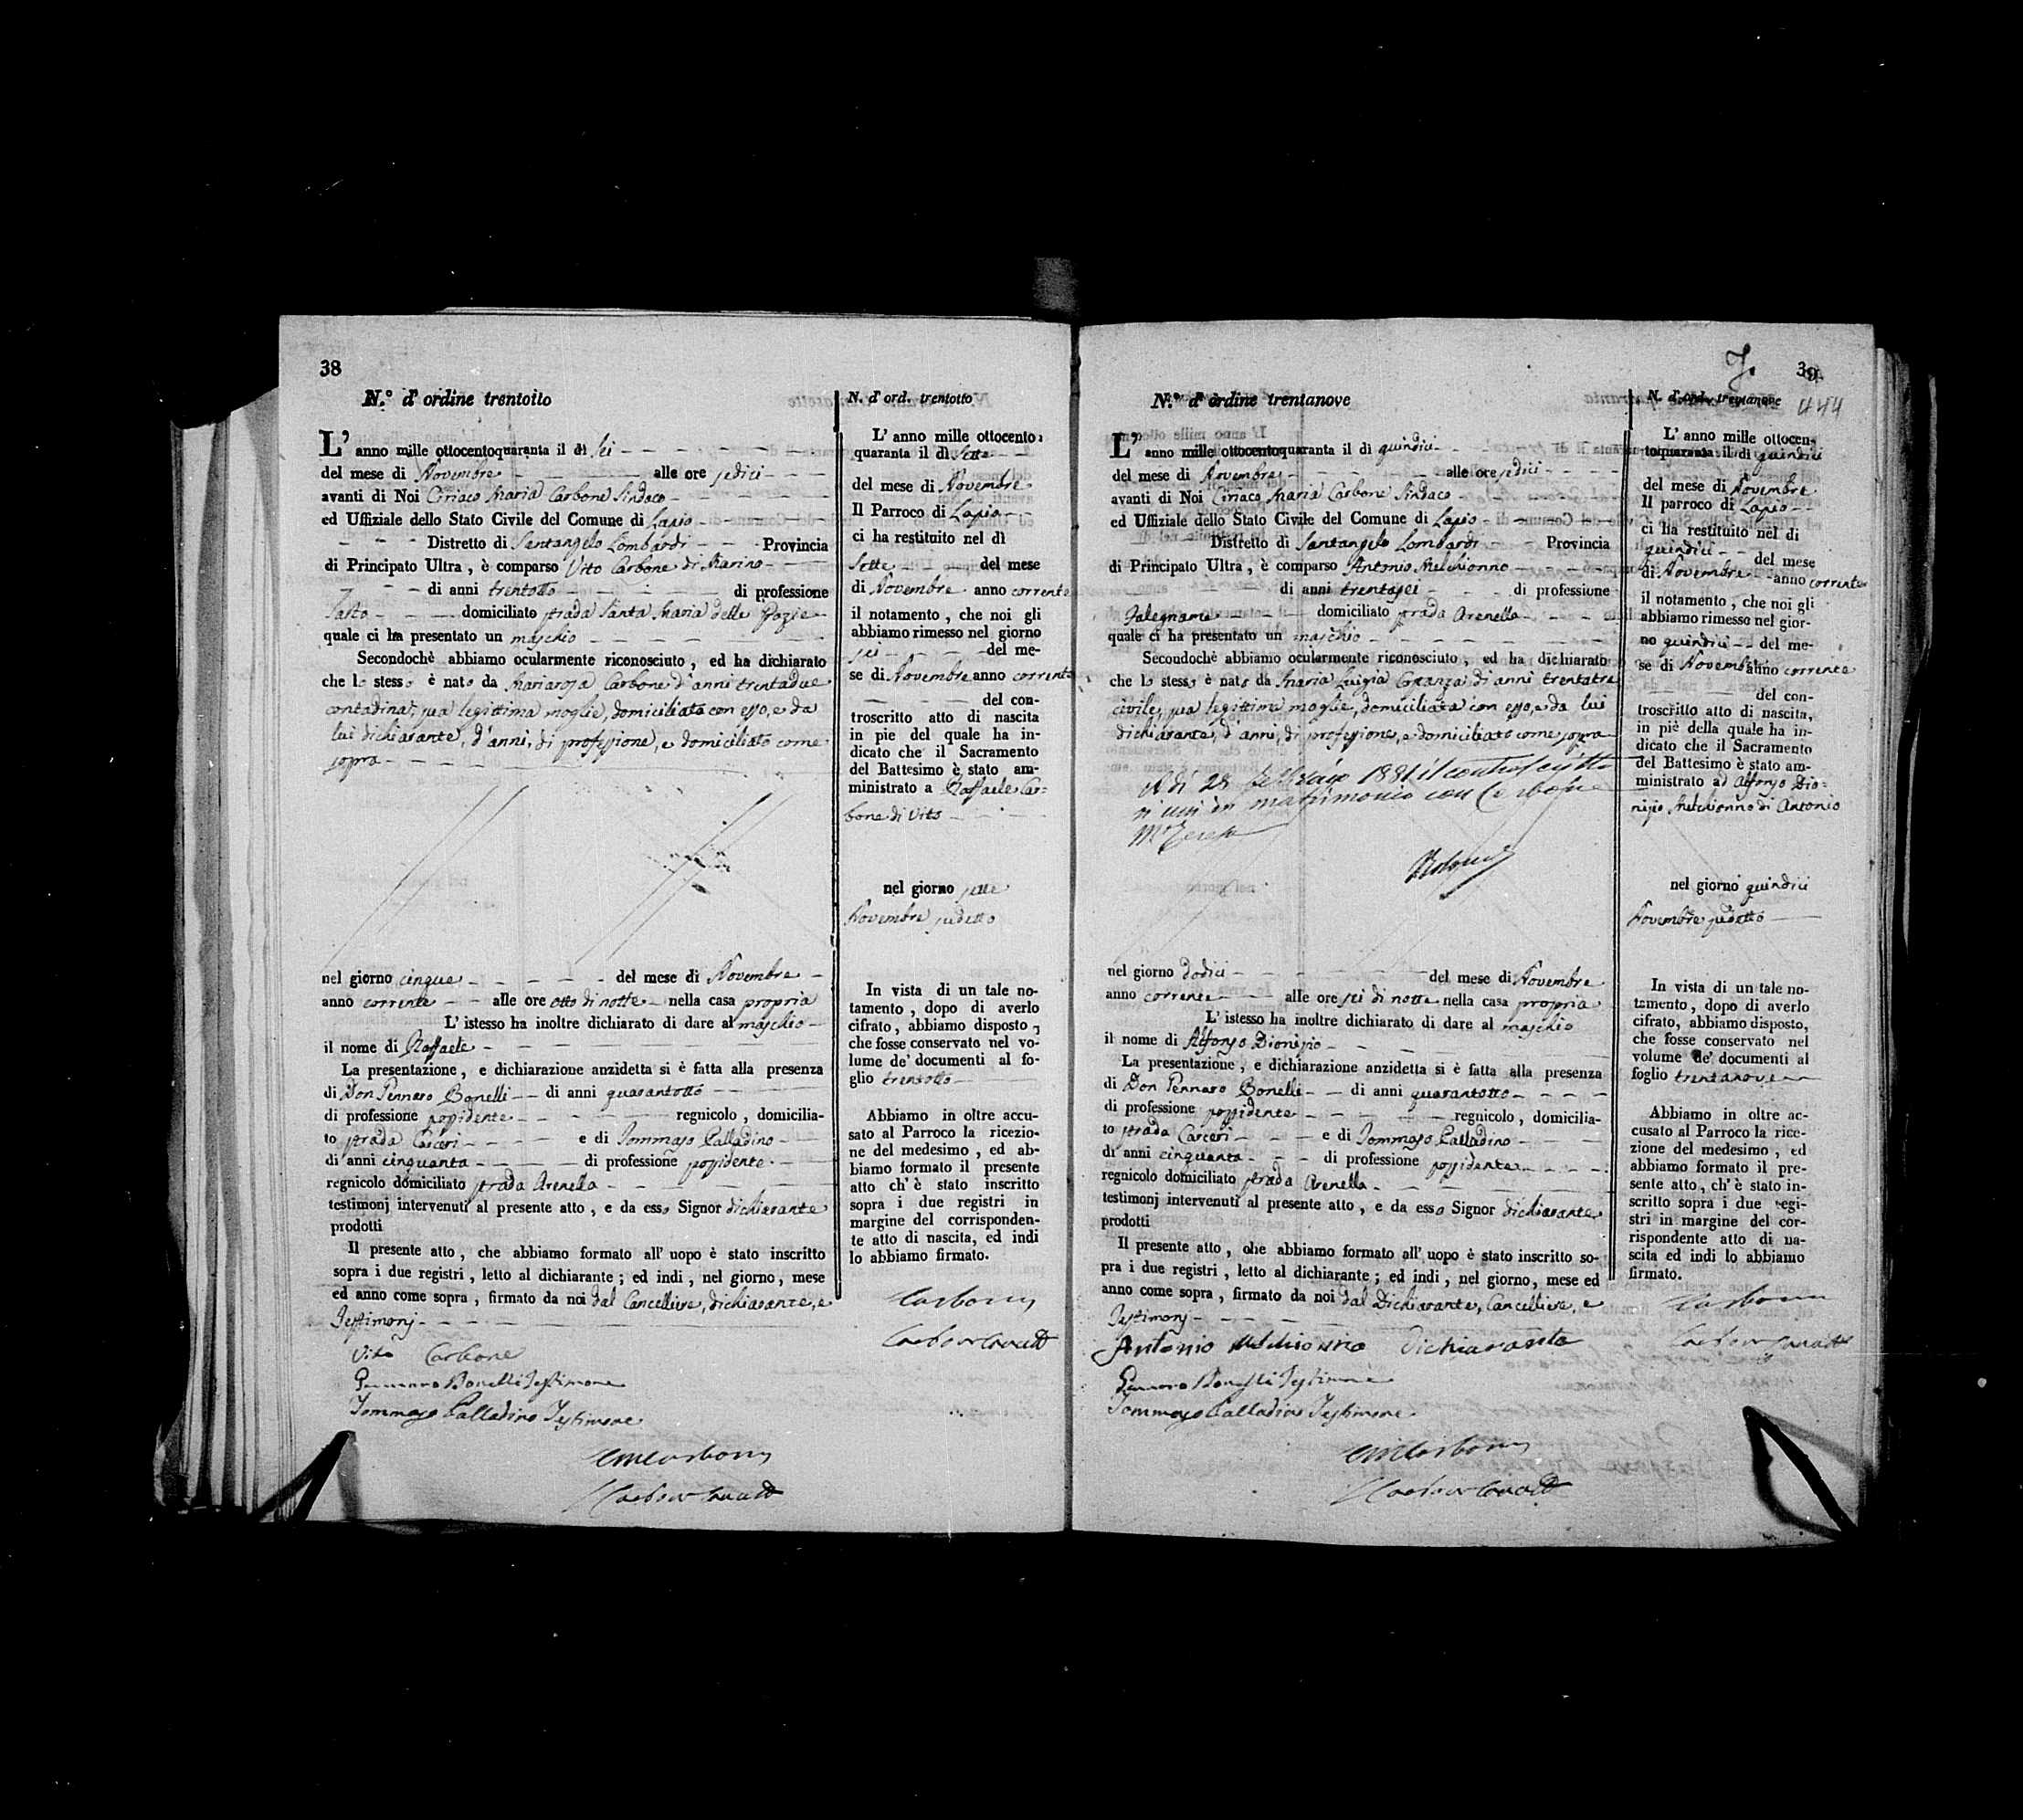 38
N.° d' ordine trentotto
L' anno mille ottocentoquaranta il dì sei
del mese di Novembre alle ore sedici
avanti di Noi Ciriaco Maria Carbone Sindaco
ed Uffiziale dello Stato Civile del Comune di Lapio
Distretto di Santangelo Lombardi Provincia
di Principato Ultra, è comparso Vito Carbone di Marino
di anni trentotto di professione
Sarto domiciliato strada Santa Maria delle Grazie
quale ci ha presentato un maschio
Secondochè abbiamo ocularmente riconosciuto, ed ha dichiarato
che lo stesso è nato da Mariarosa Carbone d'anni trentadue
contadina, sua legittima moglie, domiciliata con esso, e da
lui dichiarante, d'anni, di professione, e domiciliato come
sopra
nel giorno cinque del mese di Novembre
anno corrente alle ore otto di notte nella casa propria
L' istesso ha inoltre dichiarato di dare al maschio
il nome di Raffaele
La presentazione, e dichiarazione anzidetta si è fatta alla presenza
di Don Gennaro Bonelli di anni quarantotto
di professione possidente regnicolo, domicilia-
to strada Carceri e di Tommaso Palladino
di anni cinquanta di professione possidente
regnicolo domiciliato strada Arenella
testimonj intervenuti al presente atto, e da esso Signor dichiarante
prodotti
Il presente atto, che abbiamo formato all' uopo è stato inscritto
sopra i due registri, letto al dichiarante; ed indi, nel giorno, mese
ed anno come sopra, firmato da noi dal Cancelliere, dichiarante, e
Testimonj
Vito Carbone
Gennaro Bonelli Testimone
Tommaso Palladino Testimone
CMCarbone
N. d' ord. trentotto
L' anno mille ottocento
quaranta il dì sette
del mese di Novembre
Il Parroco di Lapio
ci ha restituito nel dì
Sette del mese
di Novembre anno corrente
il notamento, che noi gli
abbiamo rimesso nel giorno
sei del me-
se di Novembre anno corrente
del con-
troscritto atto di nascita
in pie del quale ha in-
dicato che il Sacramento
del Battesimo è stato am-
ministrato a Raffaele Car-
bone di Vito
nel giorno sette
Novembre sudetto
In vista di un tale no-
tamento, dopo di averlo
cifrato, abbiamo disposto,
che fosse conservato nel vo-
lume de' documenti al fo-
glio trentotto
Abbiamo in oltre accu-
sato al Parroco la ricezio-
ne del medesimo, ed ab-
biamo formato il presente
atto ch' è stato inscritto
sopra i due registri in
margine del corrisponden-
te atto di nascita, ed indi
lo abbiamo firmato.
Carbone
39
444
N.° d' ordine trentanove
L' anno mille ottocentoquaranta il dì quindici
del mese di Novembre alle ore sedici
avanti di Noi Ciriaco Maria Carbone Sindaco
ed Uffiziale dello Stato Civile del Comune di Lapio
Distretto di Santangelo Lombardi Provincia
di Principato Ultra, è comparso Antonio Melchionno
di anni trentasei di professione
Falegname domiciliato strada Arenella
quale ci ha presentato un maschio
Secondochè abbiamo ocularmente riconosciuto, ed ha dichiarato
che lo stesso è nato da Maria Luigia di anni trentatre
civile, sua legittima moglie, domiciliata con esso, e da lui
dichiarante, d'anni, di professione, e domiciliato come sopra
A dì 28 Febbraio 1881 il controscritto
si unì in matrimonio con Carbone
Mª Teresa
nel giorno dodici del mese di Novembre
anno corrente alle ore sei di notte nella casa propria
L' istesso ha inoltre dichiarato di dare al maschio
il nome di Alfonso Dionisio
La presentazione, e dichiarazione anzidetta si è fatta alla presenza
di Don Gennaro Bonelli di anni quarantotto
di professione possidente regnicolo, domicilia-
to strada Carceri e di Tommaso Palladino
di anni cinquanta di professione possidente
regnicolo domiciliato strada Arenella
testimonj intervenuti al presente atto, e da esso Signor dichiarante
prodotti
Il presente atto, che abbiamo formato all' uopo è stato inscritto so-
pra i due registri, letto al dichiarante; ed indi, nel giorno, mese ed
anno come sopra, firmato da noi dal Dichiarante, Cancelliere, e
Testimonj
Antonio Melchionno Dichiarante
Gennaro Bonelli Testimone
Tommaso Palladino Testimone
CMCarbone
N. d' ord. trentanove
L' anno mille ottocen-
toquaranta il di quindici
del mese di Novembre
Il parroco di Lapio
ci ha restituito nel di
quindici del mese
di Novembre anno corrente
il notamento, che noi gli
abbiamo rimesso nel gior-
no quindici del me-
se di Novembre anno corrente
del con-
troscritto atto di nascita,
in piè della quale ha in-
dicato che il Sacramento
del Battesimo è stato am-
ministrato ad Alfonso Dio-
nisio Melchionno di Antonio
nel giorno quindici
Novembre sudetto
In vista di un tale no-
tamento, dopo di averlo
cifrato, abbiamo disposto,
che fosse conservato nel
volume de' documenti al
foglio trentanove
Abbiamo in oltre ac-
cusato al Parroco la rice-
zione del medesimo, ed
abbiamo formato il pre-
sente atto, ch' è stato in-
scritto sopra i due regi-
stri in margine del cor-
rispondente atto di na-
scita ed indi lo abbiamo
firmato.
Carbone